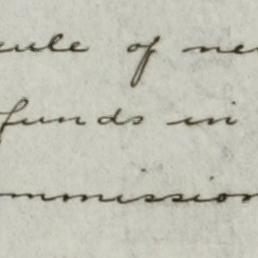 cule of ne
funds in
mmission